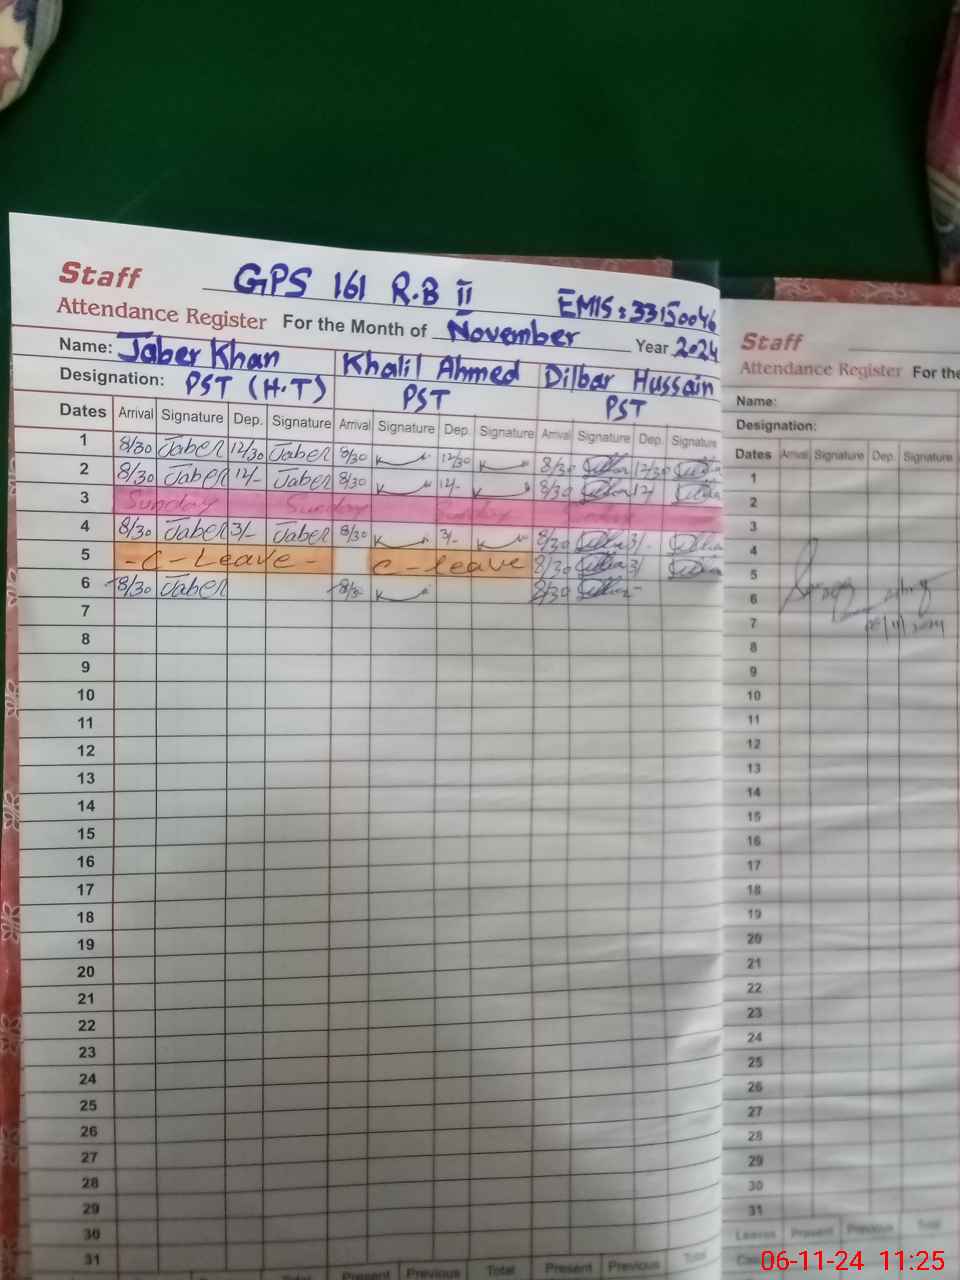 Staff GPS 161 R.B II EMIS: 33150046
Attendance Register For the Month of November Year 2024
Name: Jaber Khan Khalil Ahmed Dilbar Hussain
Designation: PST (H.T) PST PST
Dates Arrival Signature Dep. Signature Arrival Signature Dep. Signature Arrival Signature Dep. Signature
1 8/30 Jaber 12/30 Jaber 8/30 12/30 8/30 12/30
2 8/30 Jaber 12/- Jaber 8/30 12/- 8/30 12/
3 Sunday Sunday Sunday
4 8/30 Jaber 3/- Jaber 8/30 3/- 8/30 3/-
5 - C - Leave - C - leave 8/30 3/
6 8/30 Jaber 8/3 8/30
7
8
9
10
11
12
13
14
15
16
17
18
19
20
21
22
23
24
25
26
27
28
29
30
31
Total Present Previous Total Present Previous Total
Staff
Attendance Register For the
Name:
Designation:
Dates Arrival Signature Dep. Signature
1
2
3
4
5
6
7
8
9
10
11
12
13
14
15
16
17
18
19
20
21
22
23
24
25
26
27
28
29
30
31
Leaves Present Previous Total
06-11-24 11:25